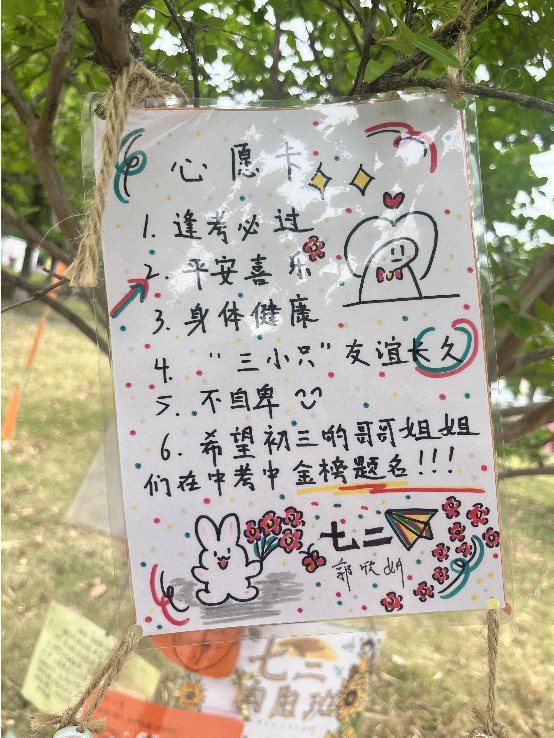 心愿卡
1. 逢考必过
2. 平安喜乐
3. 身体健康
4. "三小只"友谊长久
5. 不自卑
6. 希望初三的哥哥姐姐
们在中考中金榜题名!!!
七二
郭欣妍
七二